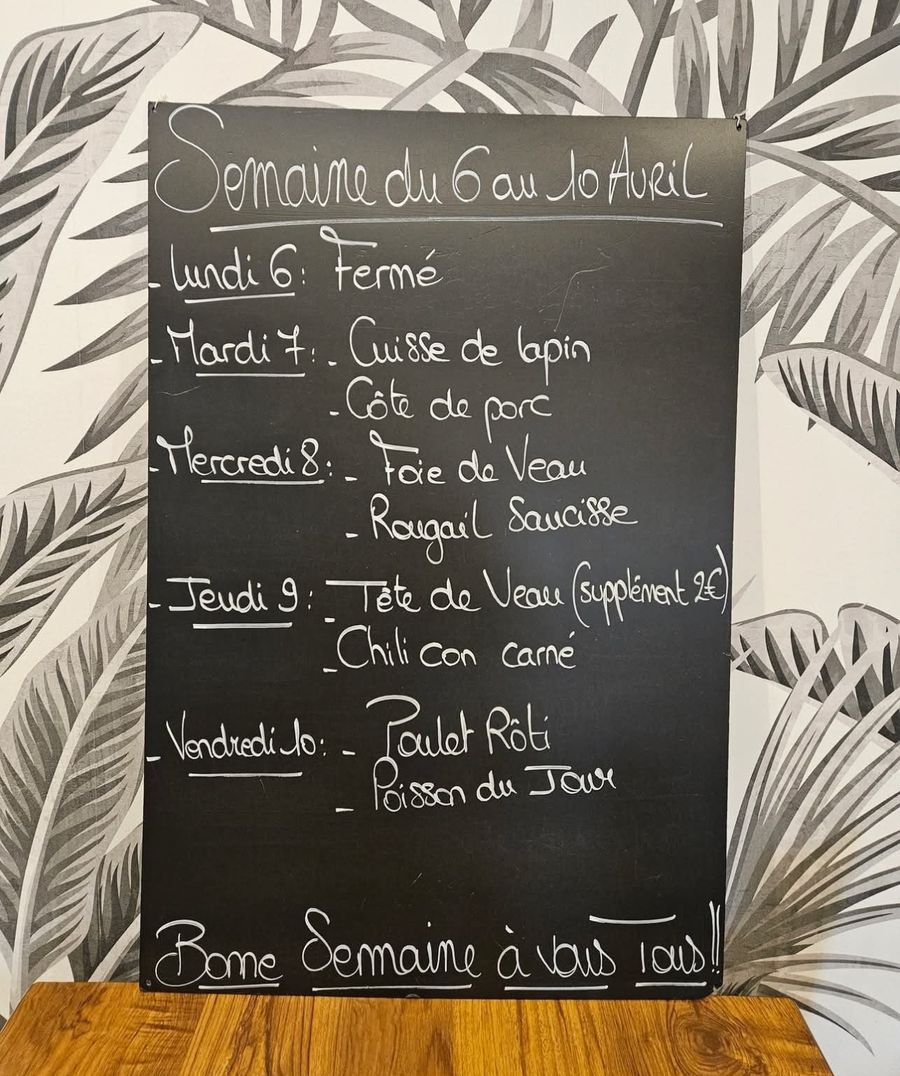 Semaine du 6 au 10 Avril
- Lundi 6 : Fermé
- Mardi 7 : - Cuisse de lapin
- Côte de porc
- Mercredi 8 : - Foie de Veau
- Rougail Saucisse
- Jeudi 9 : - Tête de Veau (supplément 2€)
- Chili con carné
- Vendredi 10 : - Poulet Rôti
- Poisson du Jour
Bonne Semaine à vous Tous !!